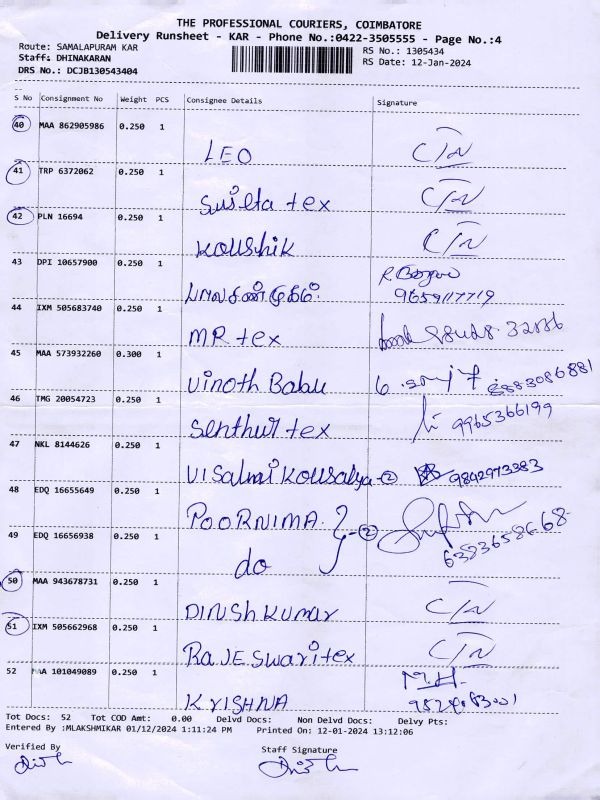 THE PROFESSIONAL COURIERS, COIMBATORE
Delivery Runsheet - KAR - Phone No.:0422-3505555 - Page No.:4
Route: SAMALAPURAM KAR RS No.: 1305434
Staff: DHINAKARAN RS Date: 12-Jan-2024
DRS No.: DCJB130543404
S No Consignment No Weight PCS Consignee Details Signature
40 MAA 862905986 0.250 1
LEO C/N
41 TRP 6372062 0.250 1
Susilta tex C/N
42 PLN 16694 0.250 1
Koushik C/N
43 DPI 10657900 0.250 1
பாலசண்முகம். 9659117719
44 IXM 505683740 0.250 1
MR tex
45 MAA 573932260 0.300 1
Vinoth Babu 6883086881
46 TMG 20054723 0.250 1
Senthur tex 9965366199
47 NKL 8144626 0.250 1
Visalmi Kousalya - 2 9842973383
48 EDQ 16655649 0.250 1
POORNIMA } - 2
49 EDQ 16656938 0.250 1
do 6383658668
50 MAA 943678731 0.250 1
DINSH KUMAR C/N
51 IXM 505662968 0.250 1
RAJESWARI tex C/N
52 MAA 101049089 0.250 1
KRISHNA M.H.
Tot Docs: 52 Tot COD Amt: 0.00 Delvd Docs: Non Delvd Docs: Delvy Pts:
Entered By :MLAKSHMIKAR 01/12/2024 1:11:24 PM Printed On: 12-01-2024 13:12:06
Verified By Staff Signature